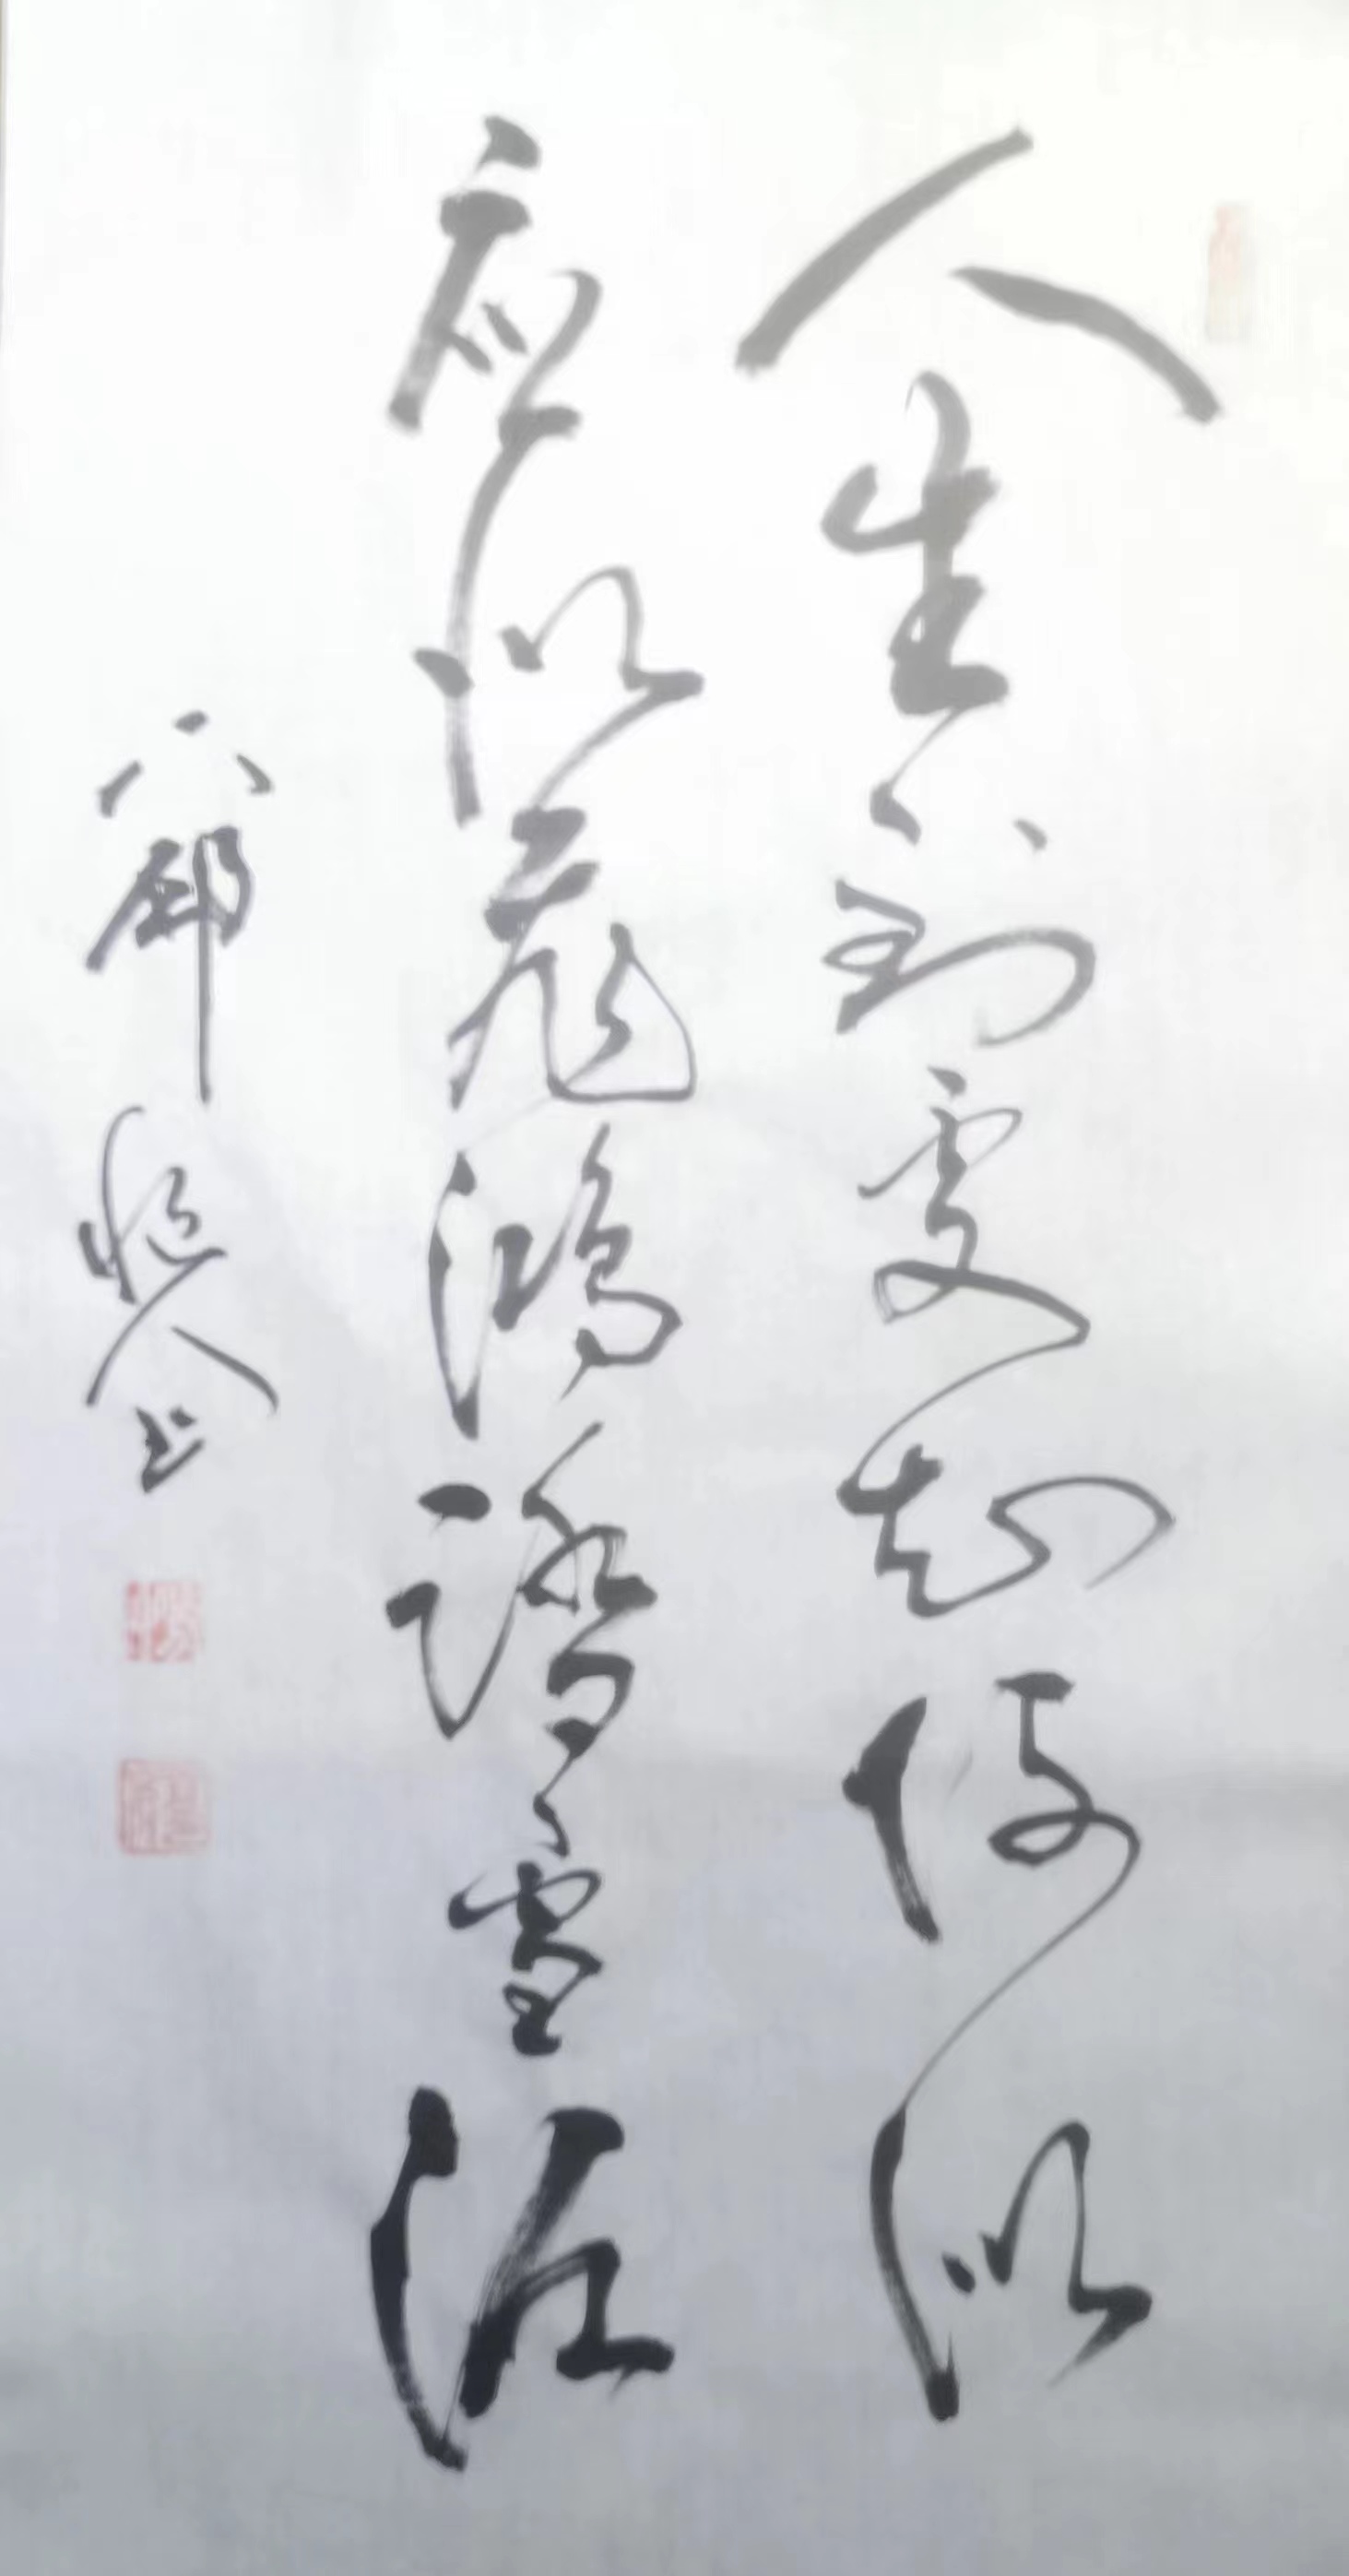 人生到处知何似
应似飞鸿踏雪泥
六
人书